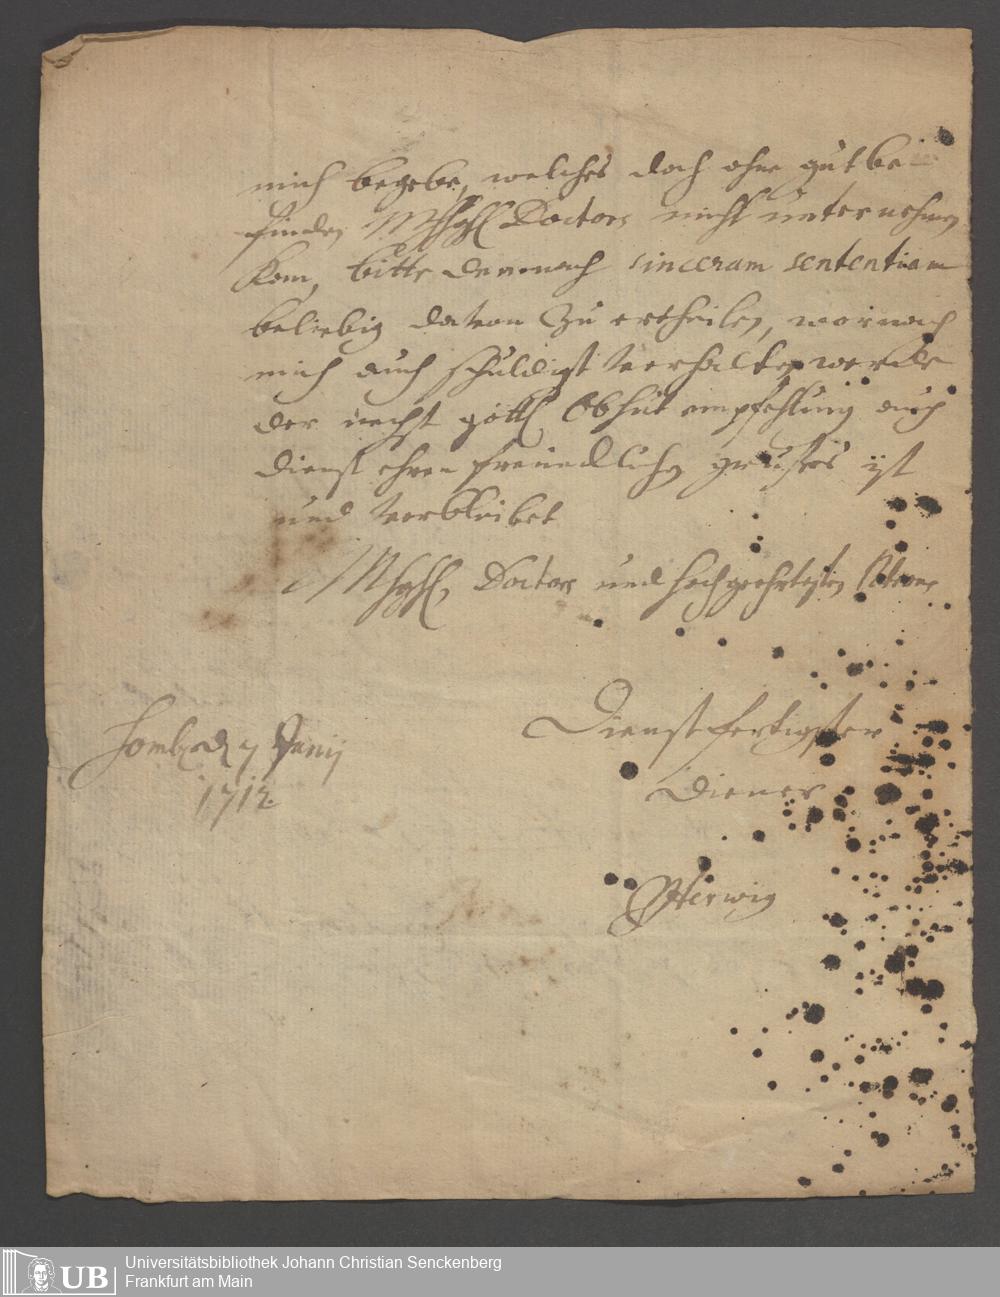 mich begebe, welches doch ohne gutbe
finden MHgHl Doctors nicht unternehmen
kan, bitte demnach sinceram sententiam
beliebig davon zu ertheilen, wornach
mich auch schuldigst verhalten werde
der nechst göttl Obhut empfehlung auch
dienst ehren freundlichen gruses ist
und verbleibet
MHgHl Doctors und hochgeehrtesten Patrons
Dienstfertigster
Homb d 7 Junij
1712.
Diener
Herwig
UB
Universitätsbibliothek Johann Christian Senckenberg
Frankfurt am Main